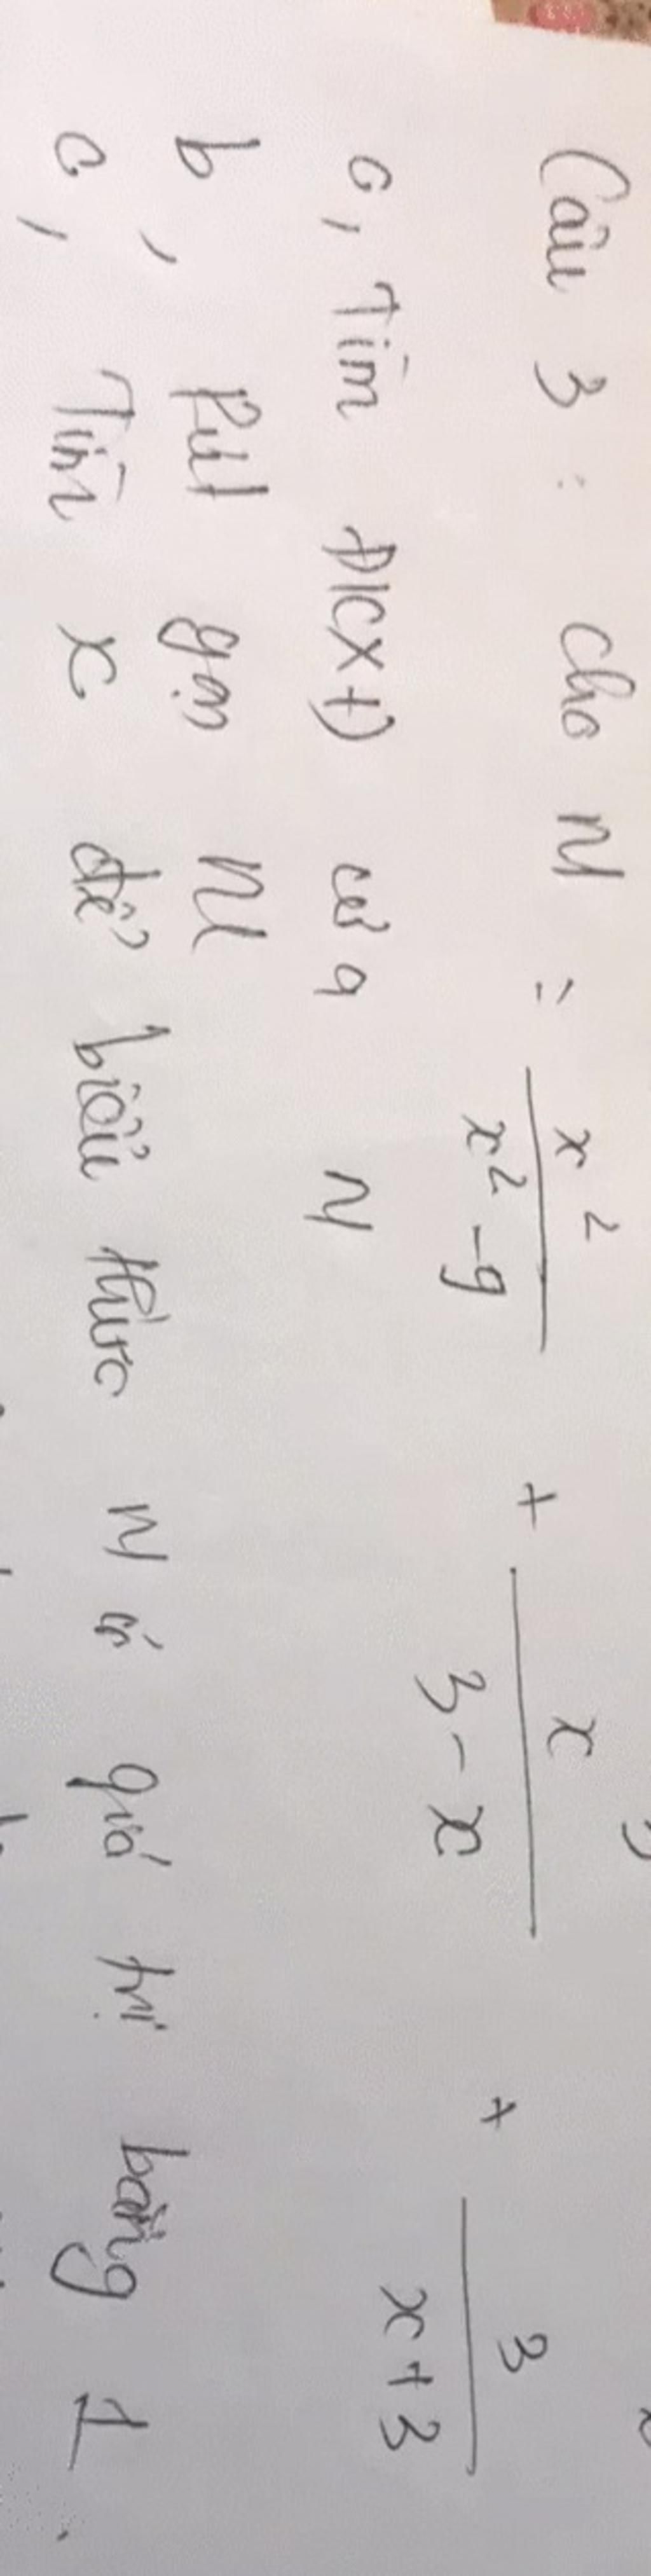 Câu 3 : cho M = x²/(x² - 9) + x/(3 - x) + 3/(x + 3)
a, Tìm ĐKXĐ của M
b, Rút gọn M
c, Tìm x để biểu thức M có giá trị bằng 1.